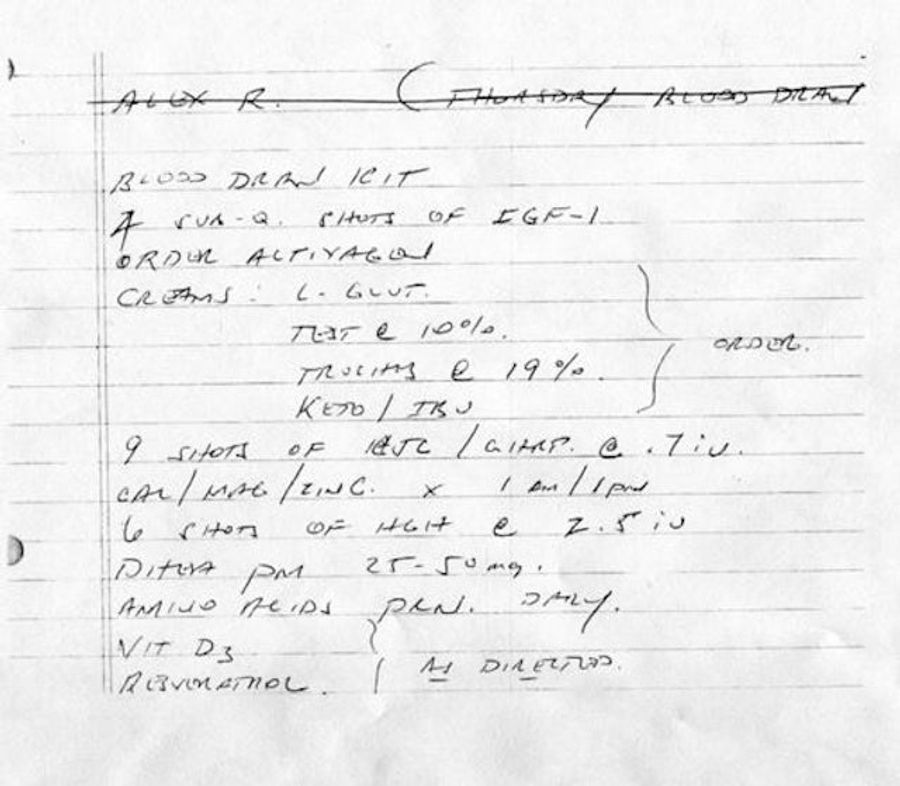 ALEX R. (THURSDAY BLOOD DRAW
BLOOD DRAW KIT
4 SUB-Q. SHOTS OF IGF-1
ORDER ACTIVAGEN
CREAMS: L. GLUT.
TEST @ 10%.
@ 19%.
ORDER.
KETO / IBU
9 SHOTS OF / GHRP. @ .7 iu.
CAL/MAG/ZINC. x 1 am/1pm
6 SHOTS OF HGH @ 2.5 iu
DHEA pm 25-50mg.
AMINO ACIDS PRN. DAILY.
VIT D3
RESVERATROL.
AS DIRECTED.